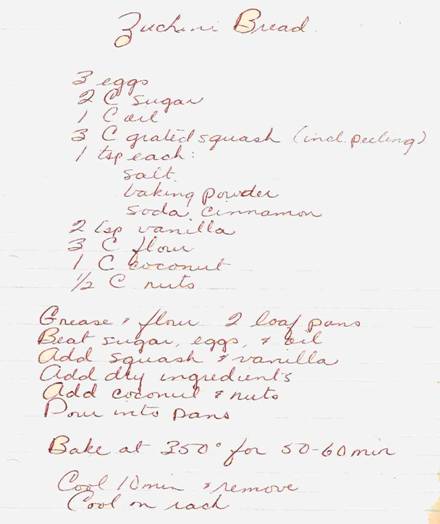 Zuchini Bread
3 eggs
2 C sugar
1 C oil
3 C grated squash (incl. peeling)
1 tsp each:
salt
baking powder
soda, cinnamon
2 tsp vanilla
3 C flour
1 C coconut
1/2 C nuts
Grease & flour 2 loaf pans
Beat sugar, eggs, & oil
Add squash & vanilla
Add dry ingredients
Add coconut & nuts
Pour into pans
Bake at 350° for 50-60 min
Cool 10 min & remove
Cool on rack